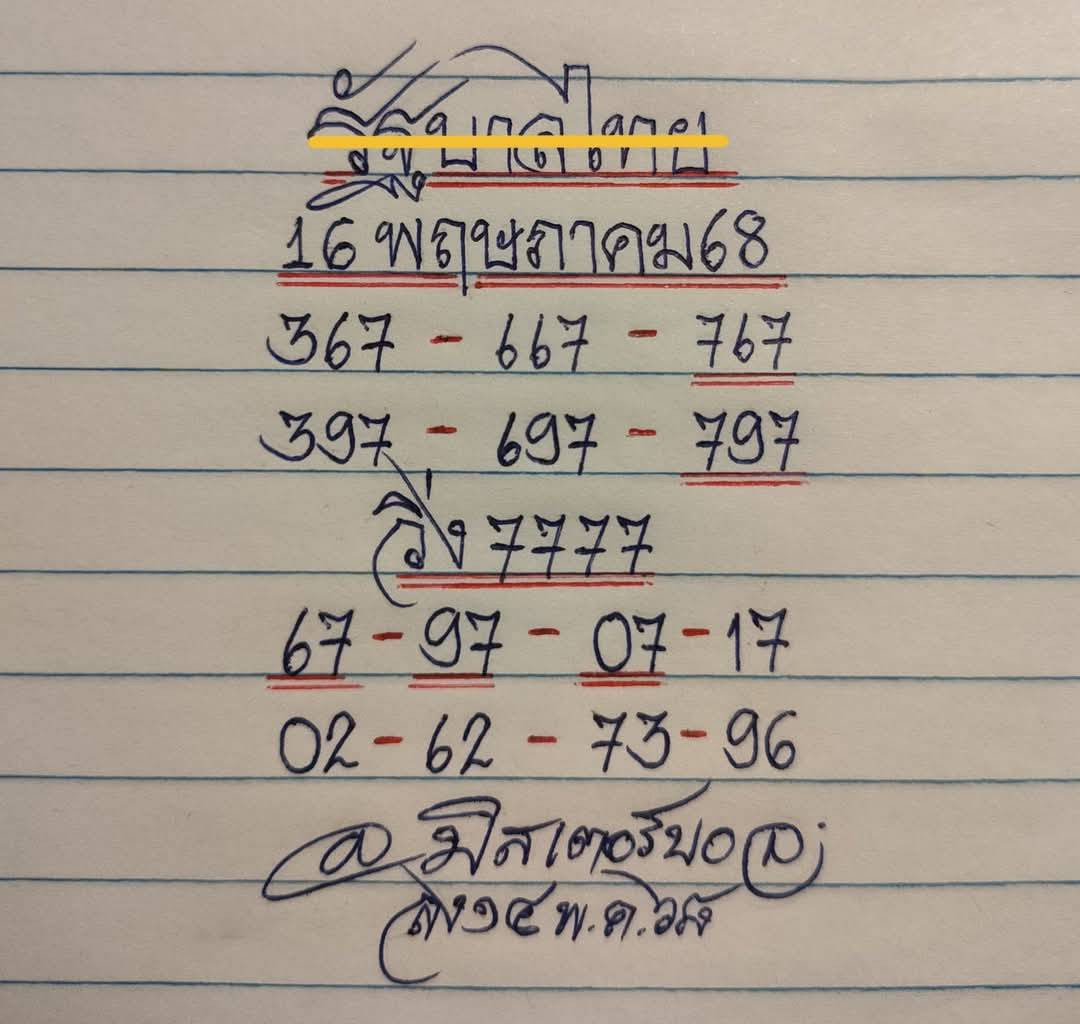 รัฐบาลไทย
16 พฤษภาคม68
367 - 667 - 767
397 - 697 - 797
วิ่ง 7777
67 - 97 - 07 - 17
02 - 62 - 73 - 96
@มิสเตอร์บอล